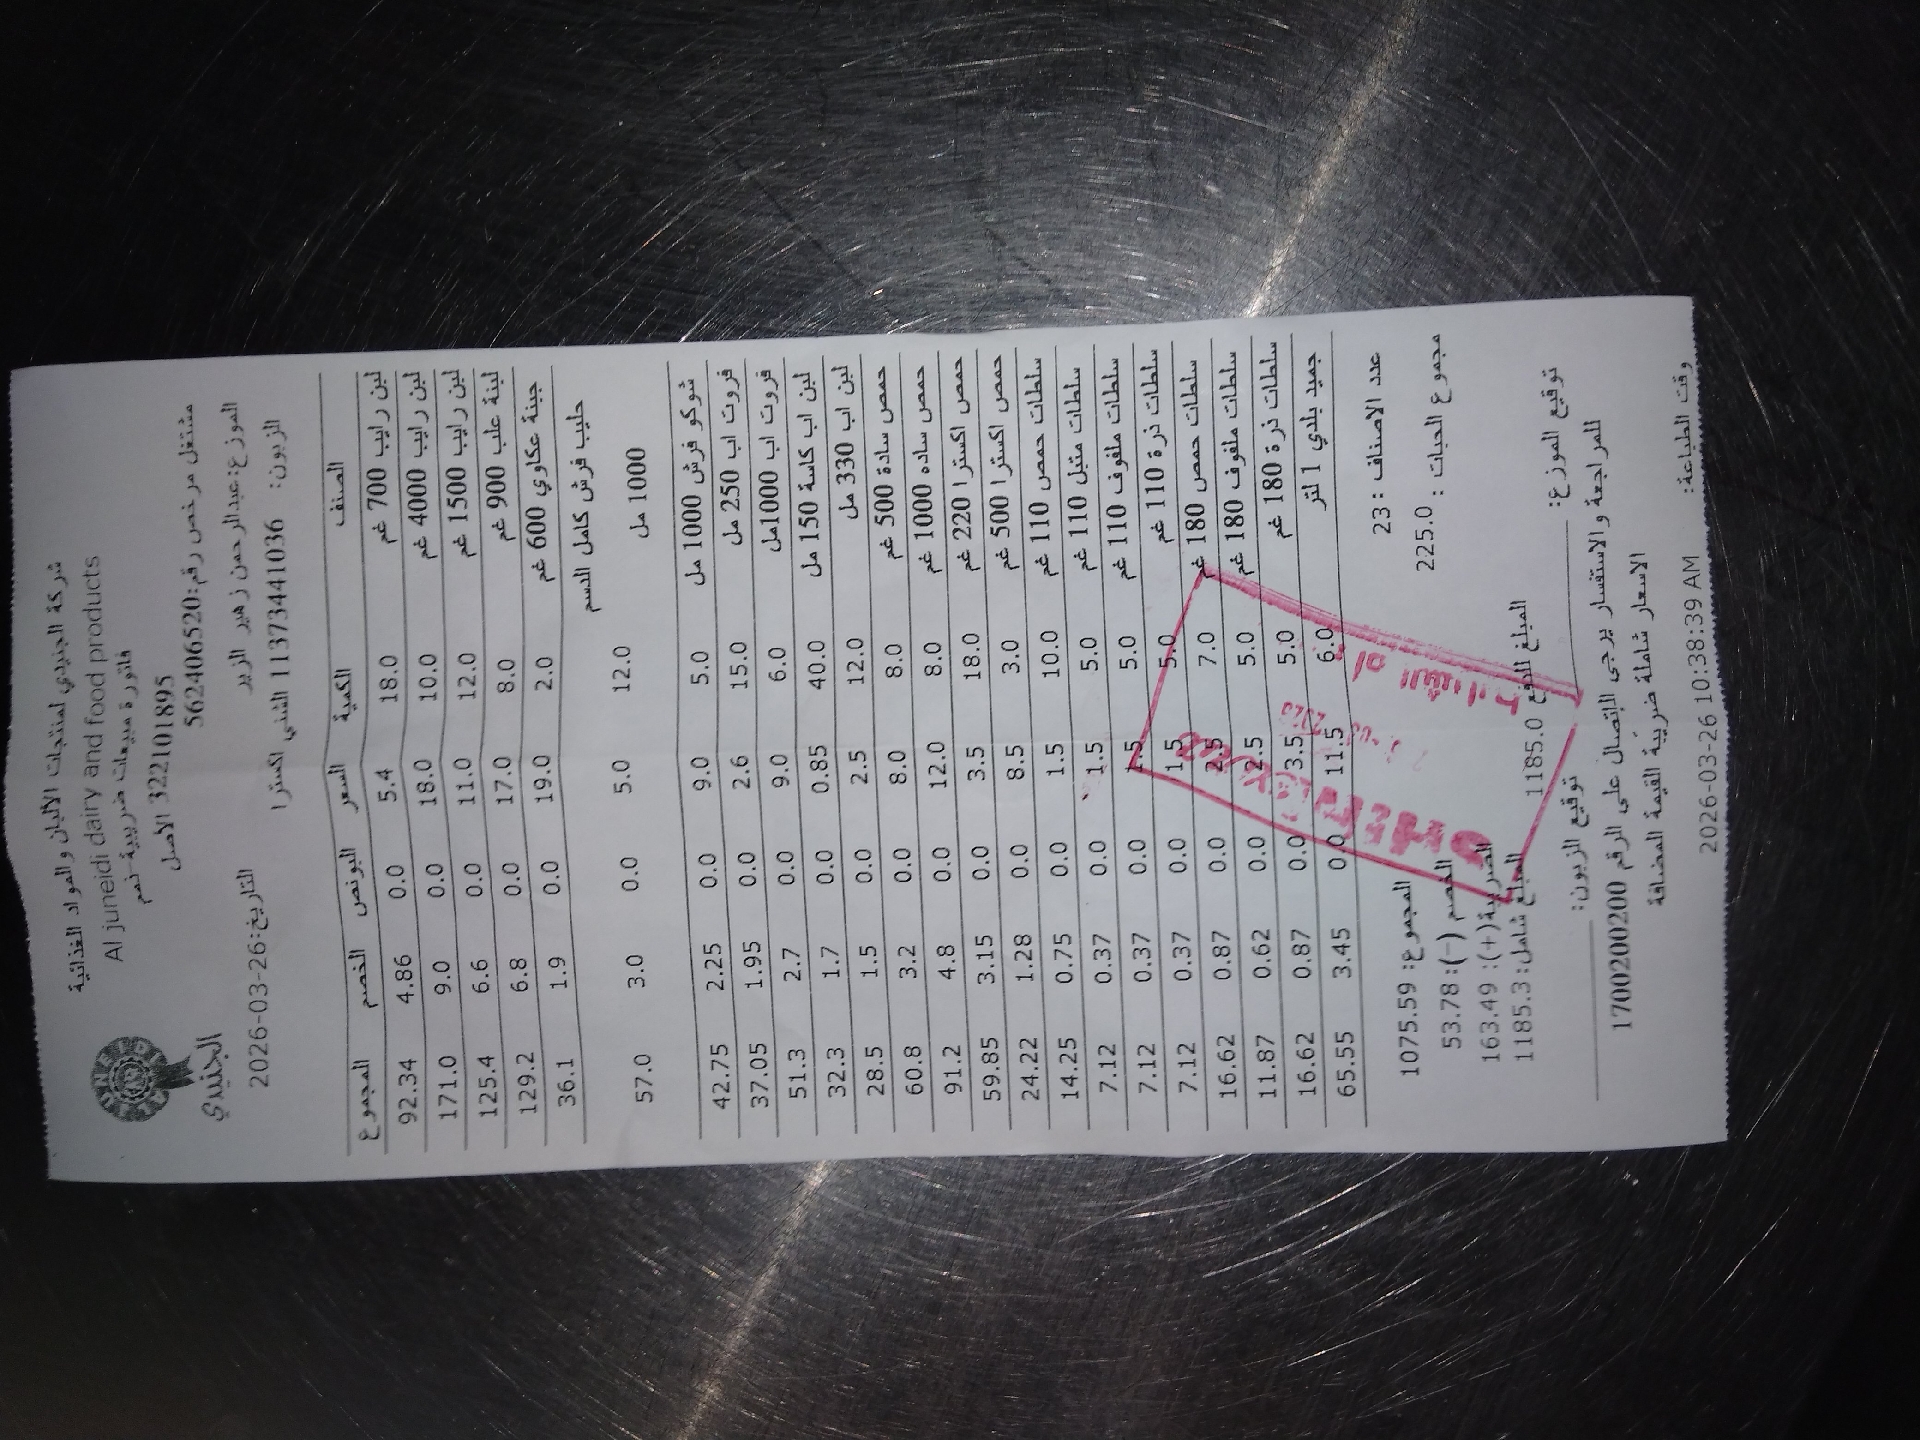 شركة الجنيدي لمنتجات الالبان والمواد الغذائية
Al juneidi dairy and food products
فاتورة مبيعات ضريبية نعم
3221101895 الاصل
مشتغل مرخص رقم:562406520
الجنيدي
الموزع:عبدالرحمن زهير الزير
التاريخ:2026-03-26
الزبون: 11373441036 الشني اكسترا
الصنف الكمية السعر البونص الخصم المجموع
لبن رايب 700 غم 18.0 5.4 0.0 4.86 92.34
لبن رايب 4000 غم 10.0 18.0 0.0 9.0 171.0
لبن رايب 1500 غم 12.0 11.0 0.0 6.6 125.4
لبنة علب 900 غم 8.0 17.0 0.0 6.8 129.2
جبنة عكاوي 600 غم 2.0 19.0 0.0 1.9 36.1
حليب فرش كامل الدسم
1000 مل 12.0 5.0 0.0 3.0 57.0
شوكو فرش 1000 مل 5.0 9.0 0.0 2.25 42.75
فروت اب 250 مل 15.0 2.6 0.0 1.95 37.05
فروت اب 1000مل 6.0 9.0 0.0 2.7 51.3
لبن اب كاسة 150 مل 40.0 0.85 0.0 1.7 32.3
لبن اب 330 مل 12.0 2.5 0.0 1.5 28.5
حمص سادة 500 غم 8.0 8.0 0.0 3.2 60.8
حمص ساده 1000 غم 8.0 12.0 0.0 4.8 91.2
حمص اكسترا 220 غم 18.0 3.5 0.0 3.15 59.85
حمص اكسترا 500 غم 3.0 8.5 0.0 1.28 24.22
سلطات حمص 110 غم 10.0 1.5 0.0 0.75 14.25
سلطات متبل 110 غم 5.0 1.5 0.0 0.37 7.12
سلطات ملفوف 110 غم 5.0 1.5 0.0 0.37 7.12
سلطات ذرة 110 غم 5.0 1.5 0.0 0.37 7.12
سلطات حمص 180 غم 7.0 2.5 0.0 0.87 16.62
سلطات ملفوف 180 غم 5.0 2.5 0.0 0.62 11.87
سلطات ذرة 180 غم 5.0 3.5 0.0 0.87 16.62
جميد بلدي 1 لتر 6.0 11.5 0.0 3.45 65.55
عدد الاصناف : 23
المجموع: 1075.59
مجموع الحبات : 225.0
الخصم (-): 53.78
الضريبة(+): 163.49
المبلغ شامل: 1185.3
المبلغ للدفع 1185.0
توقيع الموزع:
توقيع الزبون:
للمراجعة والاستفسار يرجى الاتصال على الرقم 1700200200
الاسعار شاملة ضريبة القيمة المضافة
وقت الطباعة: 2026-03-26 10:38:39 AM